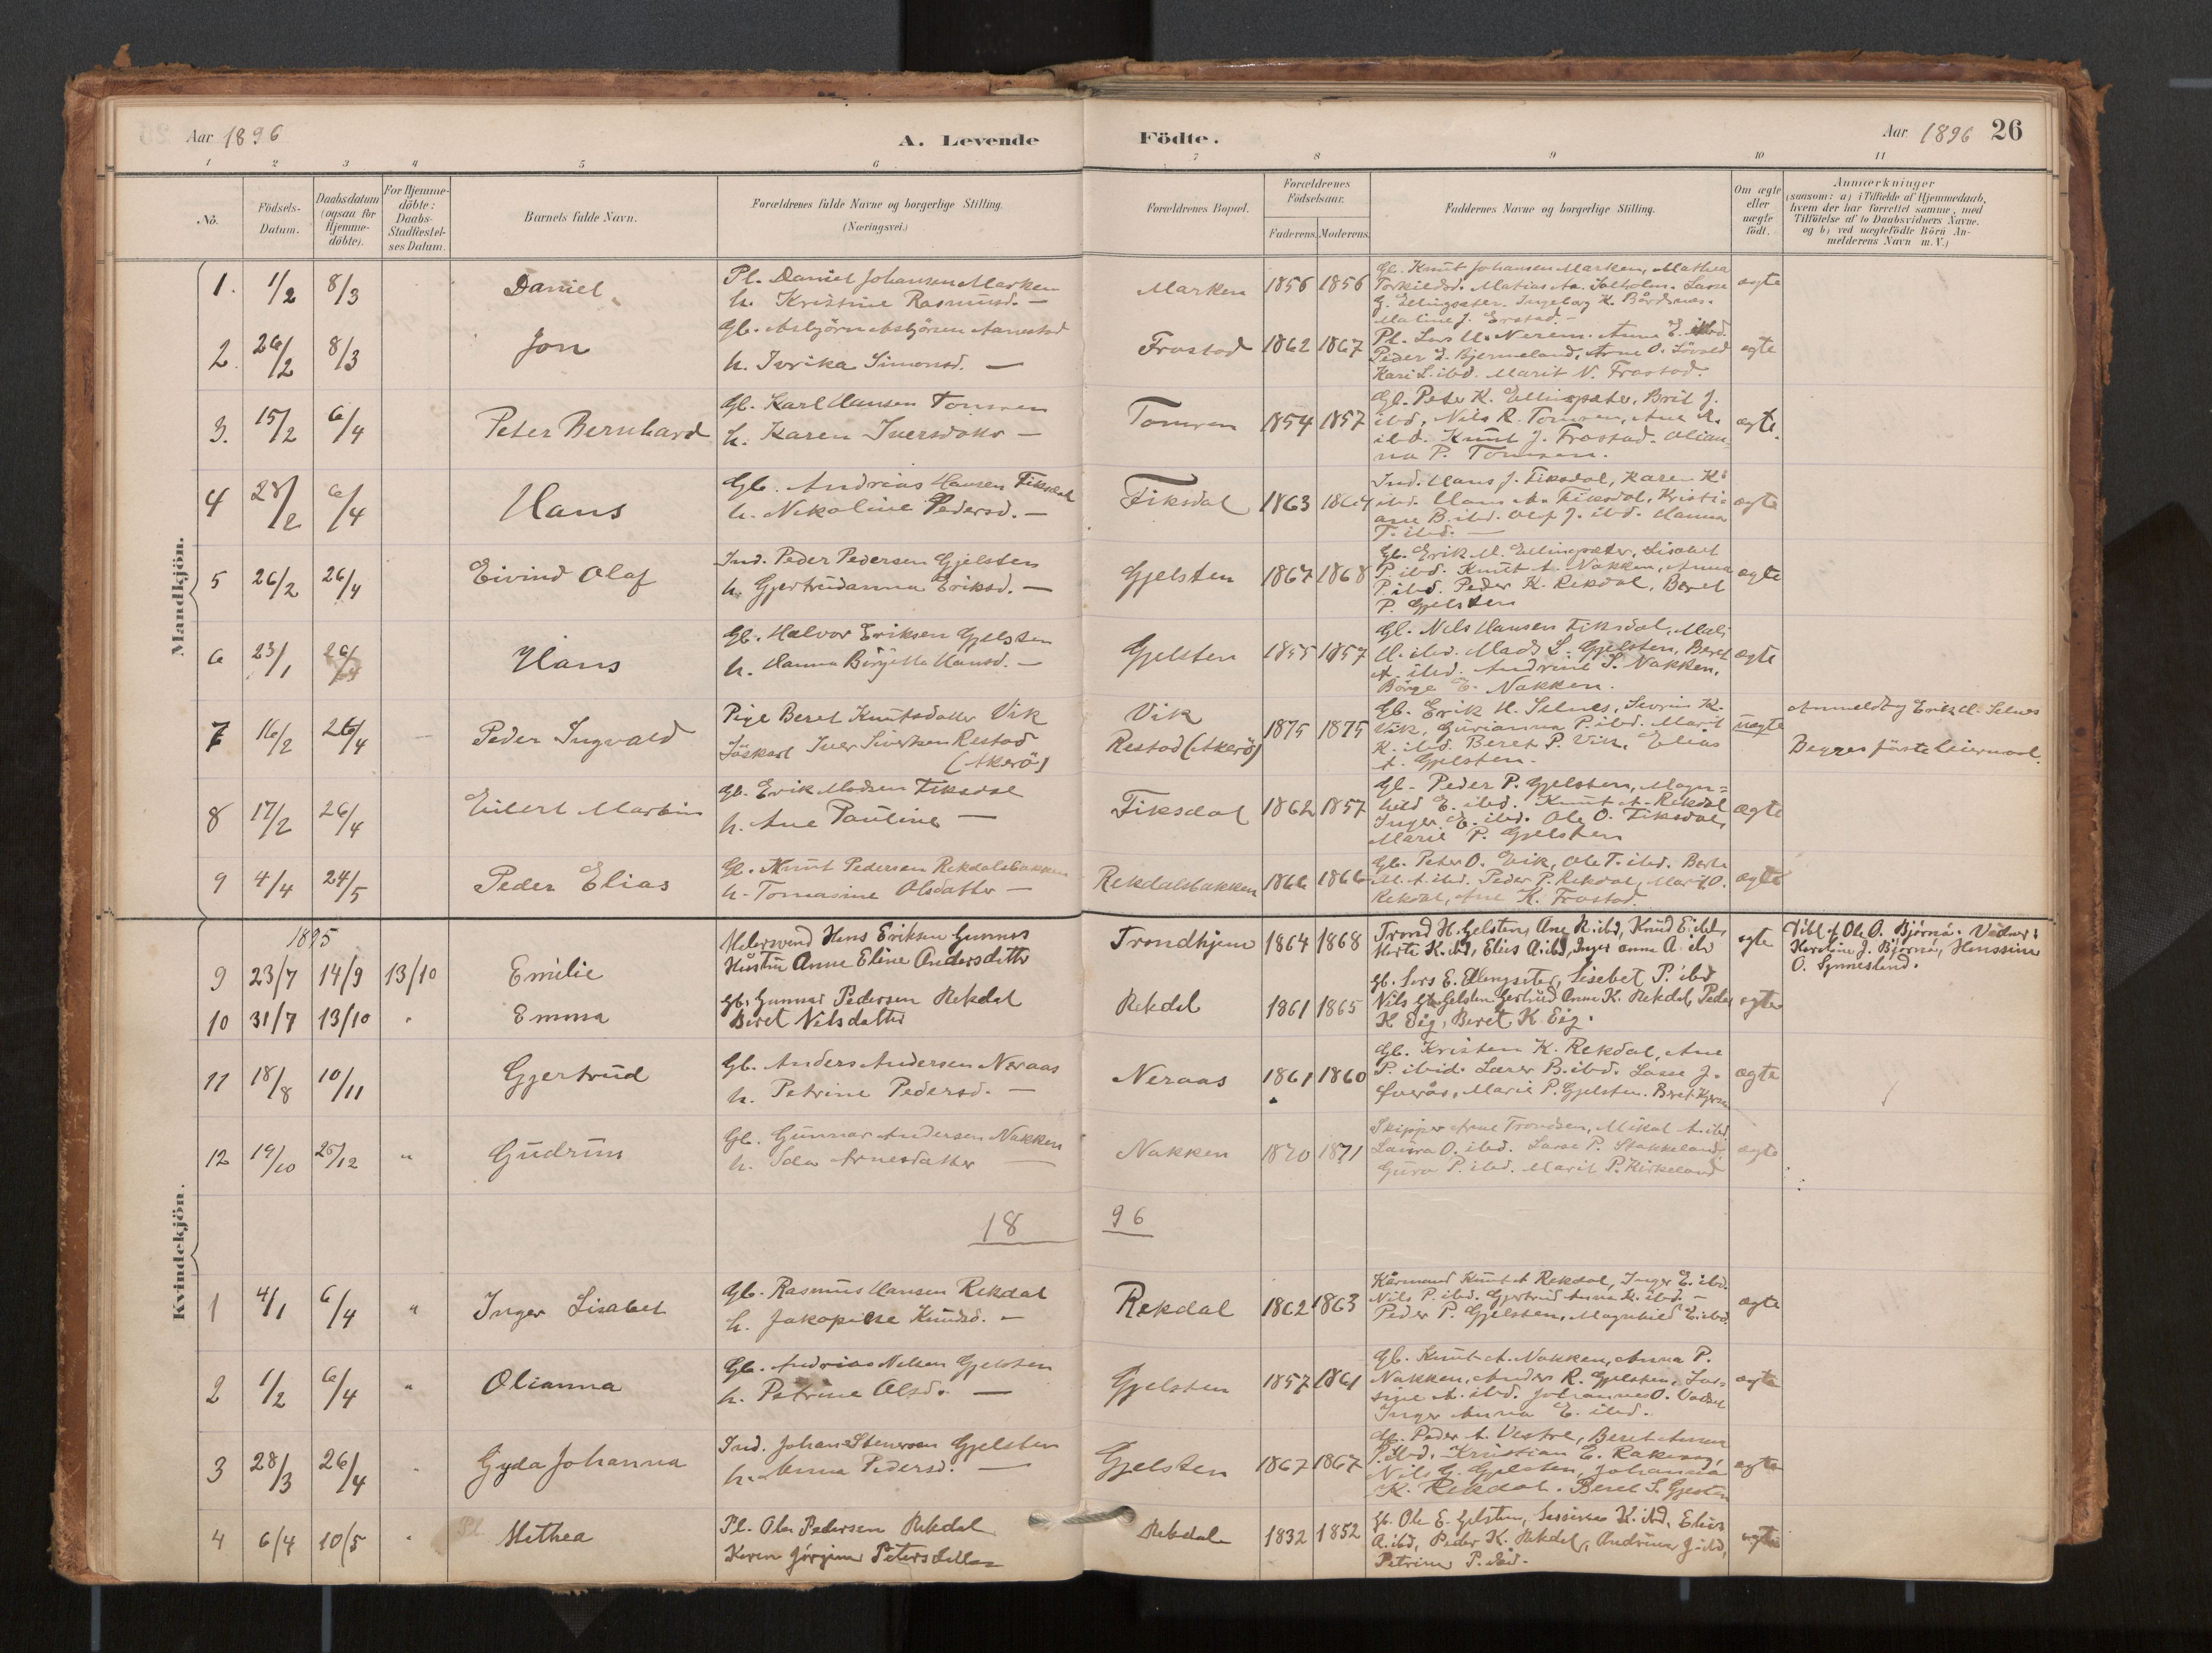 Aar 1896
A. Levende
Födte.
Aar 1896
26
1 2 3 4 5 6 7 8 9 10 11
No.
Födsels-
Datum.
Daabsdatum
(ogsaa for
Hjemme-
döbte).
For Hjemme-
döbte:
Daabs-
Stadfæstel-
ses Datum.
Barnets fulde Navn.
Forældrenes fulde Navne og borgerlige Stilling.
(Næringsvei.)
Forældrenes Bopæl.
Forældrenes
Födselsaar.
Faderens. Moderens.
Faddernes Navne og borgerlige Stilling.
Om ægte
eller
uægte
födt.
Anmærkninger
(saasom: a) i Tilfælde af Hjemmedaab,
hvem der har forrettet samme, med
Tilföielse af to Daabsvidners Navne.
og b) ved uægtefödte Börn An-
melderens Navn m. V.)
Mandkjön.
1. 1/2 8/3 Daniel
Pl. Daniel Johansen Marken
h. Kristine Rasmusd. —
Marken 1856 1856
Gb. Knut Johansen Marken, Mathea
Torkildsd. Matias Aa. Lasse
G. Ellingsæter. Ingeborg K.
Maline J. Erstad. —
ægte
2. 26/2 8/3 Jon
Gb. Asbjörn Asbjörnsen Aarestad
h. Ivrika Simonsd. —
Frostad 1862 1867
Pl. Lars U. Nerem. Anne E. ibid.
Peder L. Bjermeland, Arne O.
Kari L. ibd. Marit N. Frostad.
ægte
3. 15/2 6/4 Peter Bernhard
Gb. Karl Hansen Tomren
h. Karen Iversdatter —
Tomren 1854 1857
Gb. Peter K. Ellingsæter, Brit J.
ibd, Nils R. Tomren, Ane A.
ibd. Knut J. Frostad. Olian-
na P. Tomren.
ægte.
4 28/2 6/4 Hans
Gb. Andrias Hansen Fiksdal
h. Nikoline Pedersd. —
Fiksdal 1863 1864
Ind. Hans J. Fiksdal, Karen K.
ibd. Hans A. Fiksdal, Kristi-
ane B. ibd. Olef J. ibd. Hanna
T. ibd. —
ægte
5 26/2 26/4 Eivind Olaf
Ind. Peder Pedersen Gjelsten
h. Gjertrudanna Eriksd. —
Gjelsten 1867 1868
Gb. Erik M. Ellingsæter, Lisabet
P. ibd. Knut A. Nakken, Anna
P. ibd. Peder K. Rekdal, Beret
P. Gjelsten
ægte
6 23/1 26/4 Hans
Gb. Halvor Eriksen Gjelsten
h. Hanna Birgitta Hansd. —
Gjelsten 1855 1857
Gb. Nils Hansen Fiksdal, Mali
H. ibd. Mads L. Gjelsten, Beret
A. ibd. Andrine S. Nakken.
Börge E. Nakken.
ægte
7 16/2 26/4 — Peder Ingvald
Pige Beret Knutsdatter Vik
Iver Sivertsen Restad
(Akerö)
Vik
Restad (Akerö)
1875 1875
Gb. Erik H. Selnes, Sevrin K.
Vik, Gurianna P. ibd. Marit
K. ibd. Beret P. Vik, Elias
A. Gjelsten.
uægte
Anmeldt af Erik H. Selnes
Begges förste leiermaal.
8 17/2 26/4 Eilert Martin
Gb. Erik Madsen Fiksdal
h. Ane Pauline —
Fiksdal 1862 1857
Gb. Peder P. Gjelsten, Magn-
hild E. ibd. Knut A. Rekdal
Inger E. ibd. Ole O. Fiksdal,
Marie P. Gjelsten
ægte
9 4/4 24/5 Peder Elias
Gb. Knut Pedersen Rekdalsbakken
h. Tomasine Olsdatter —
Rekdalsbakken 1866 1866
Gb. Peter O. Vik, Ole T. ibd. Berte
M. A. ibd. Peder P. Rekdal, Marit O.
Rekdal, Ane K. Frostad.
ægte
Kvindekjön.
1895
9 23/7 14/9 13/10 Emilie
Hans Eriksen Gunnes
Hustru Anne Eline Andersdatter
Trondhjem 1864 1868
Trond H. Gelsten, Ane R. ibd, Knud E. ibd,
Marte K. ibd, Elias A. ibd, Inger Anne A. ibd
egte
Döbt af Ole O. Björnå. Vidner:
Karoline J. Björnå, Hanssine
O. Synneslend.
10 31/7 13/10 " Emma
Gb. Gunnar Pedersen Rekdal
Beret Nilsdatter
Rekdal 1861 1865
Gb. Lars E. Ellengseter, Lisebet P. ibd
Nils Gb. Gelsten, Gertrud Anne K. Rekdal, Peder
K. Eig, Beret K. Eig.
egte
11 18/8 10/11 Gjertrud
Gb. Anders Andersen Neraas
h. Petrine Pedersd. —
Neraas 1861 1860
Gb. Kristen K. Rekdal, Ane
P. ibid. Lasse B. ibd. Lasse J.
Överås, Marie P. Gjelsten. Beret
ægte
12 19/10 25/12 " Gudrun
Gb. Gunnar Andersen Nakken
h. Ida Arnesdatter —
Nakken 1870 1871
Skipper Arne Trondsen, Mikal A. ibd,
Laura O. ibd. Lasse P. Stokkeland,
Guro P. ibd. Marit P. Kirkeland
ægte
18 96
1 4/1 6/4 " Inger Lisabet
Gb. Rasmus Hansen Rekdal
h. Jakopine Knudsd. —
Rekdal 1862 1863
Kårmand Knut A Rekdal, Inger E. ibd.
Nils P. ibd. Gjertrud Anna K. ibd. —
Peder P. Gjelsten, Magnhild E. ibd.
ægte
2 1/2 6/4 " Olianna
Gb. Andrias Nelsen Gjelsten
h. Petrine Olsd. —
Gjelsten 1857 1861
Gb. Knut A. Nakken, Anna P.
Nakken, Anders R. Gjelsten,
sine A. ibd. Johannes O.
Inger Anna E. ibd.
ægte
3 28/3 26/4 Gyda Johanna
Ind. Johan Stenersen Gjelsten
h. Anna Pedersd. —
Gjelsten 1867 1867
Gb. Peder A. Vestre, Beret Anna
P. ibd. Kristian E. Rakvaag,
Nils G. Gjelsten, Johanna
K. Rekdal. Beret S. Gjelsten
ægte
4 6/4 10/5 " Pl. Mathea
Pl. Ole Pedersen Rekdal
Karen Jörgine Petersdatter
Rekdal 1832 1852
Gb. Ole E. Gelsten, K. ibd, Elias
A. ibd, Peder K. Rekdal, Andrine J. ibd,
Petrine P. ibd.
egte